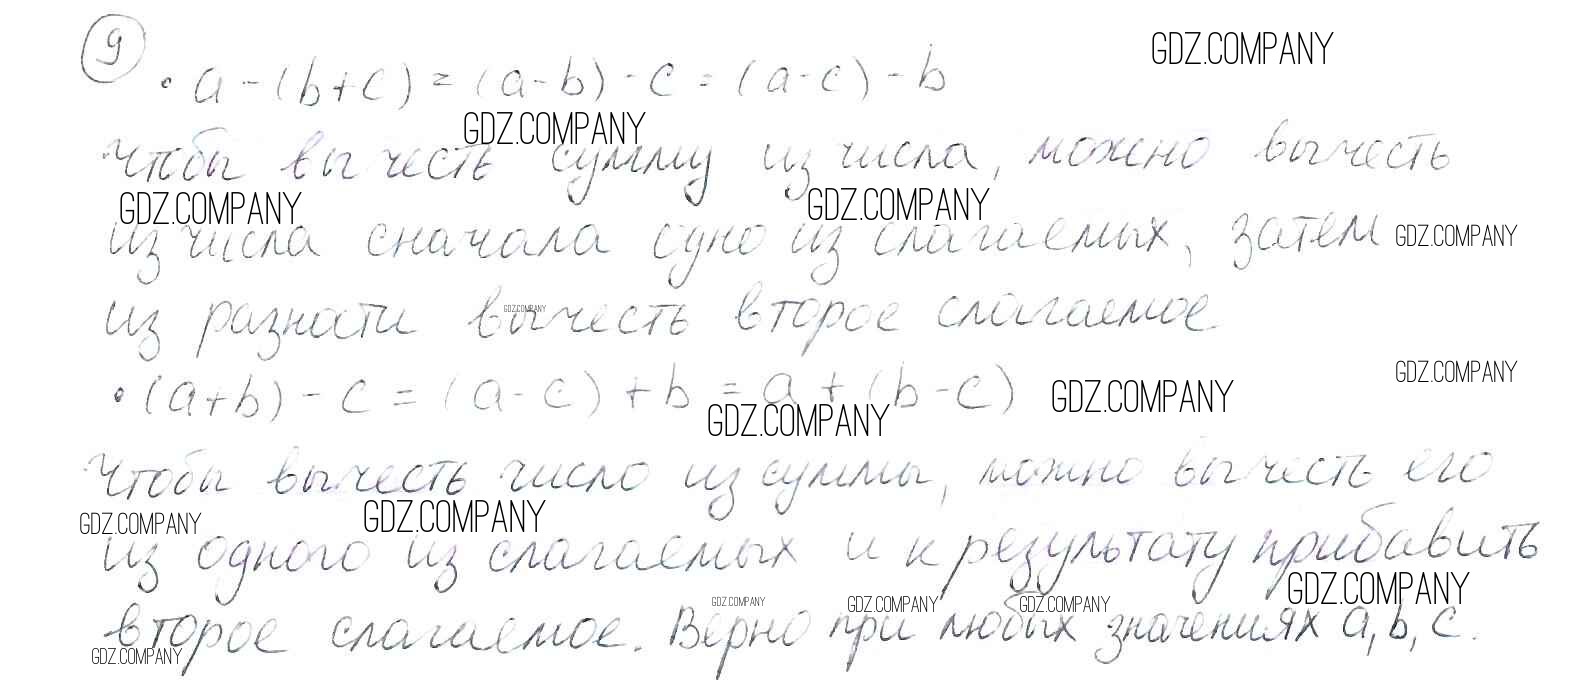 9
GDZ.COMPANY
• a - (b + c) = (a - b) - c = (a - c) - b
GDZ.COMPANY
Чтобы вычесть сумму из числа, можно вычесть
GDZ.COMPANY GDZ.COMPANY
из числа сначала одно из слагаемых, затем GDZ.COMPANY
GDZ.COMPANY
из разности вычесть второе слагаемое
GDZ.COMPANY
• (a + b) - c = (a - c) + b = a + (b - c) GDZ.COMPANY
GDZ.COMPANY
Чтобы вычесть число из суммы, можно вычесть его
GDZ.COMPANY GDZ.COMPANY
из одного из слагаемых и к результату прибавить
GDZ.COMPANY
GDZ.COMPANY GDZ.COMPANY GDZ.COMPANY
второе слагаемое. Верно при любых значениях a, b, c.
GDZ.COMPANY